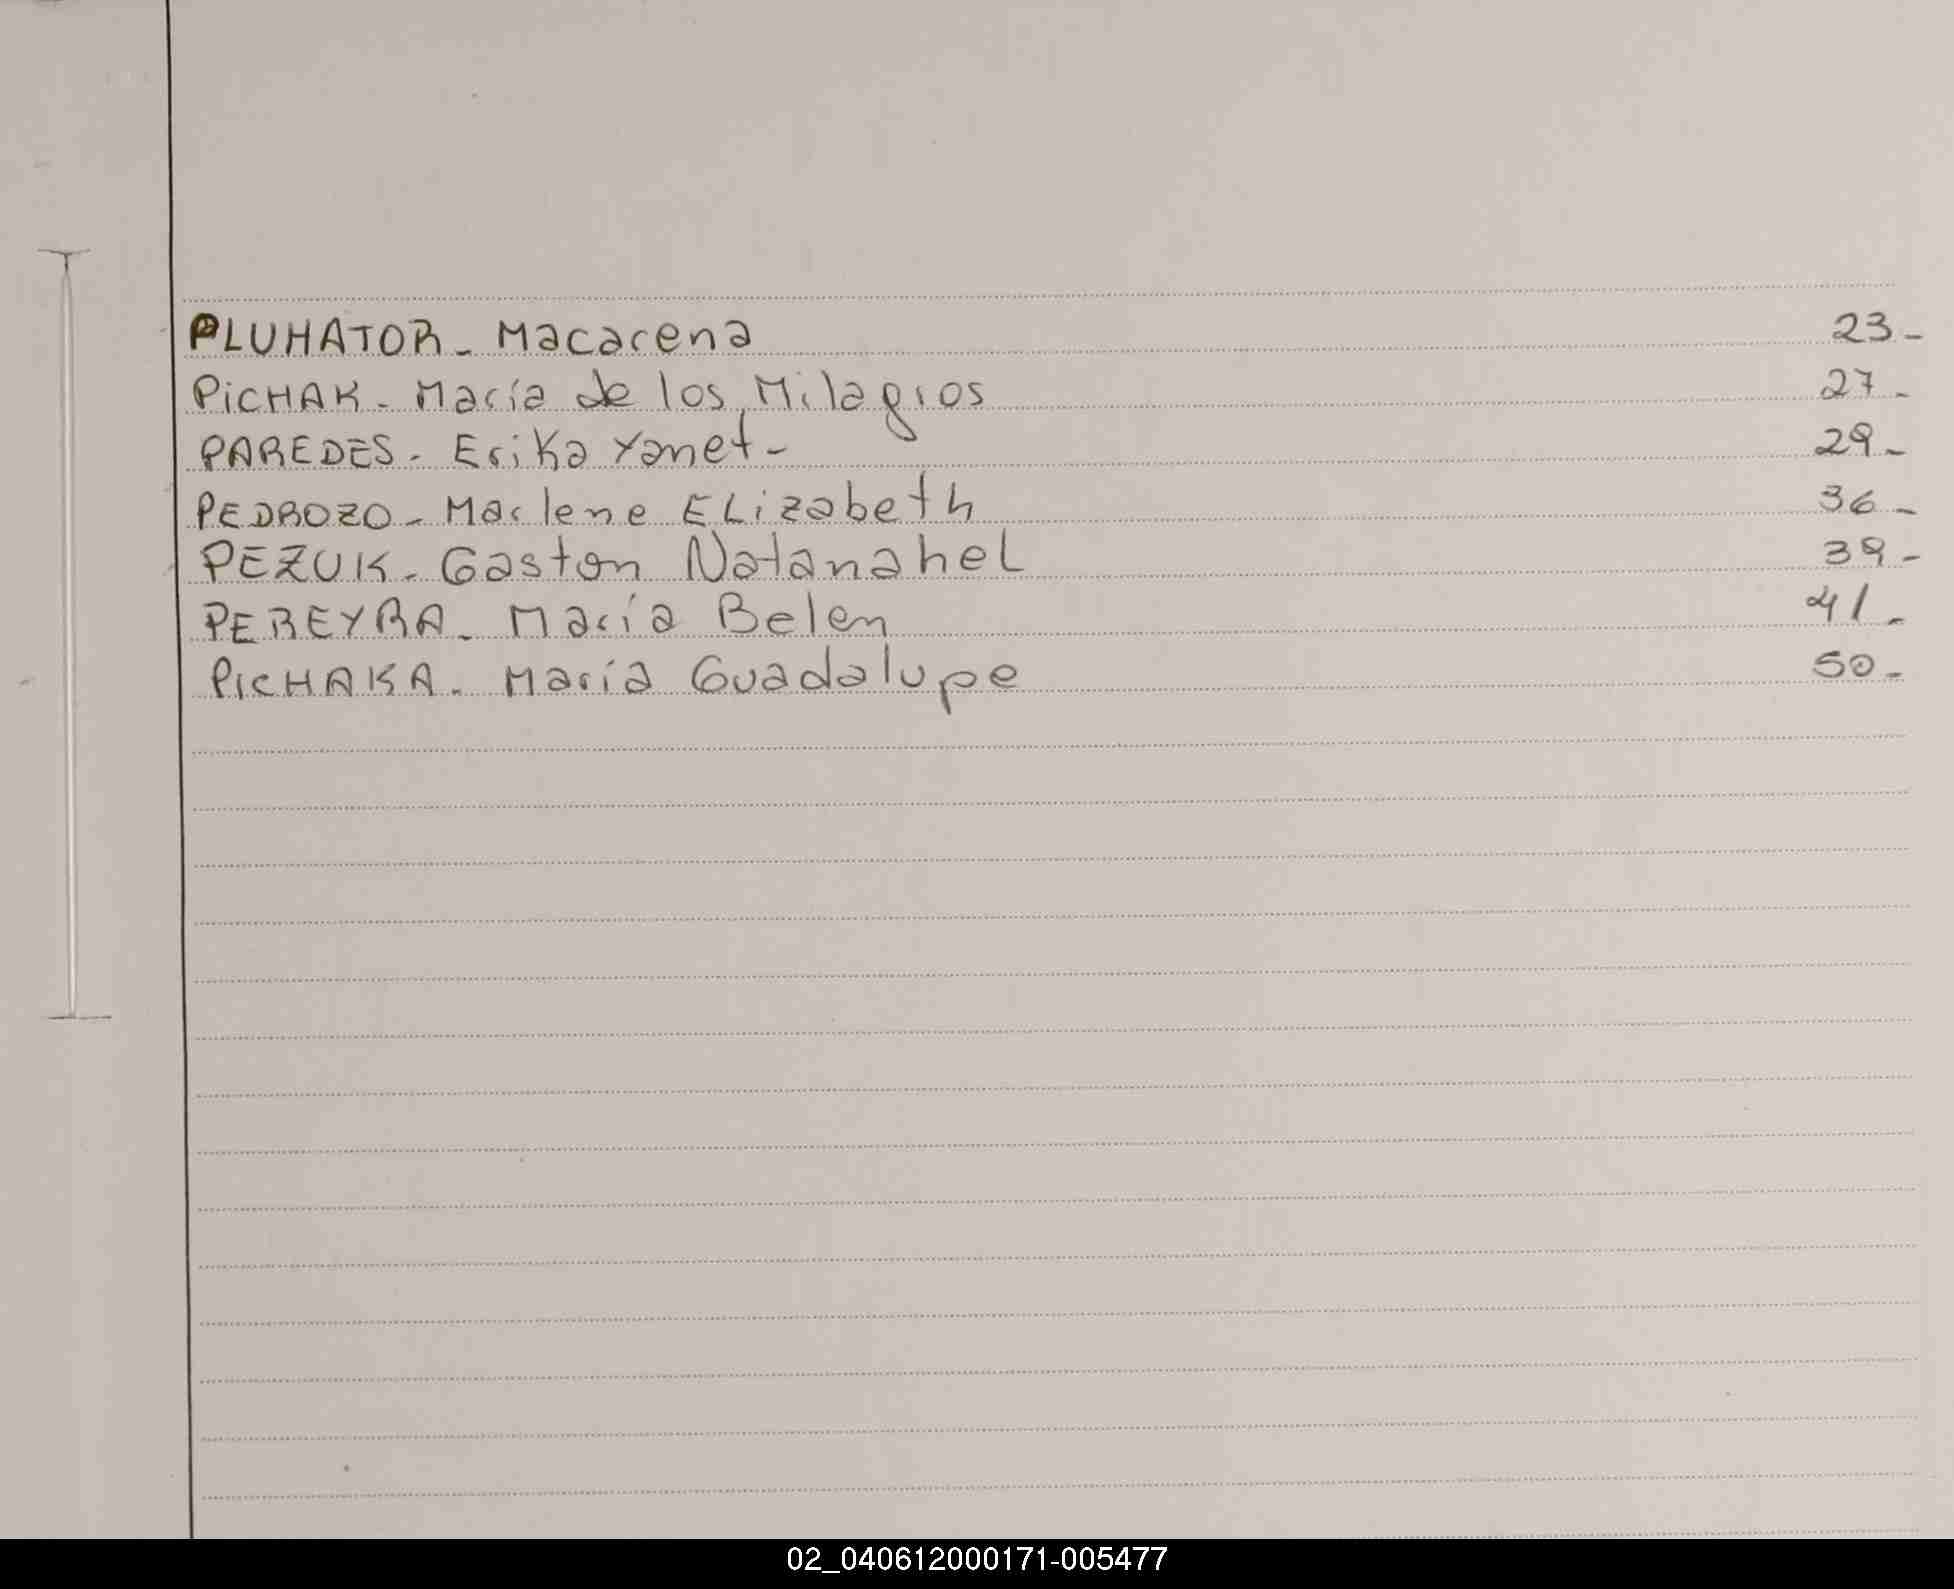 PLUHATOR - Macarena 23-
PiCHAK - María de los Milagros 27-
PAREDES - Erika Yanet - 29-
PEDROZO - Marlene ELizabeth 36-
PEZUK - Gaston NatanaheL 39-
PEREYRA - María Belen 41-
PiCHAKA - María Guadalupe 50-
02_040612000171-005477